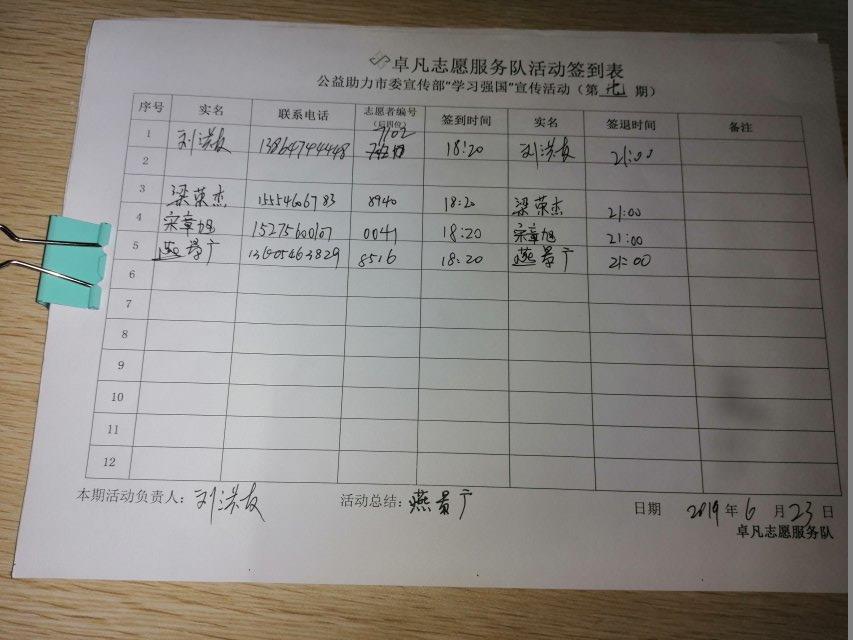 卓凡志愿服务队活动签到表
公益助力市委宣传部“学习强国”宣传活动（第 七 期）
序号 实名 联系电话 志愿者编号（后四位） 签到时间 实名 签退时间 备注
1 刘洪友 13864744448 7102 18:20 刘洪友 21:00
2
3 梁荣杰 15554606783 8940 18:20 梁荣杰 21:00
4 宋章旭 15275600107 0041 18:20 宋章旭 21:00
5 燕景广 13605463829 8516 18:20 燕景广 21:00
6
7
8
9
10
11
12
本期活动负责人：刘洪友 活动总结：燕景广 日期 2019 年 6 月 23 日
卓凡志愿服务队